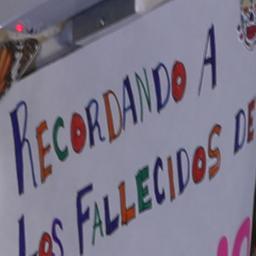 RECORDANDO A
LOS FALLECIDOS DE